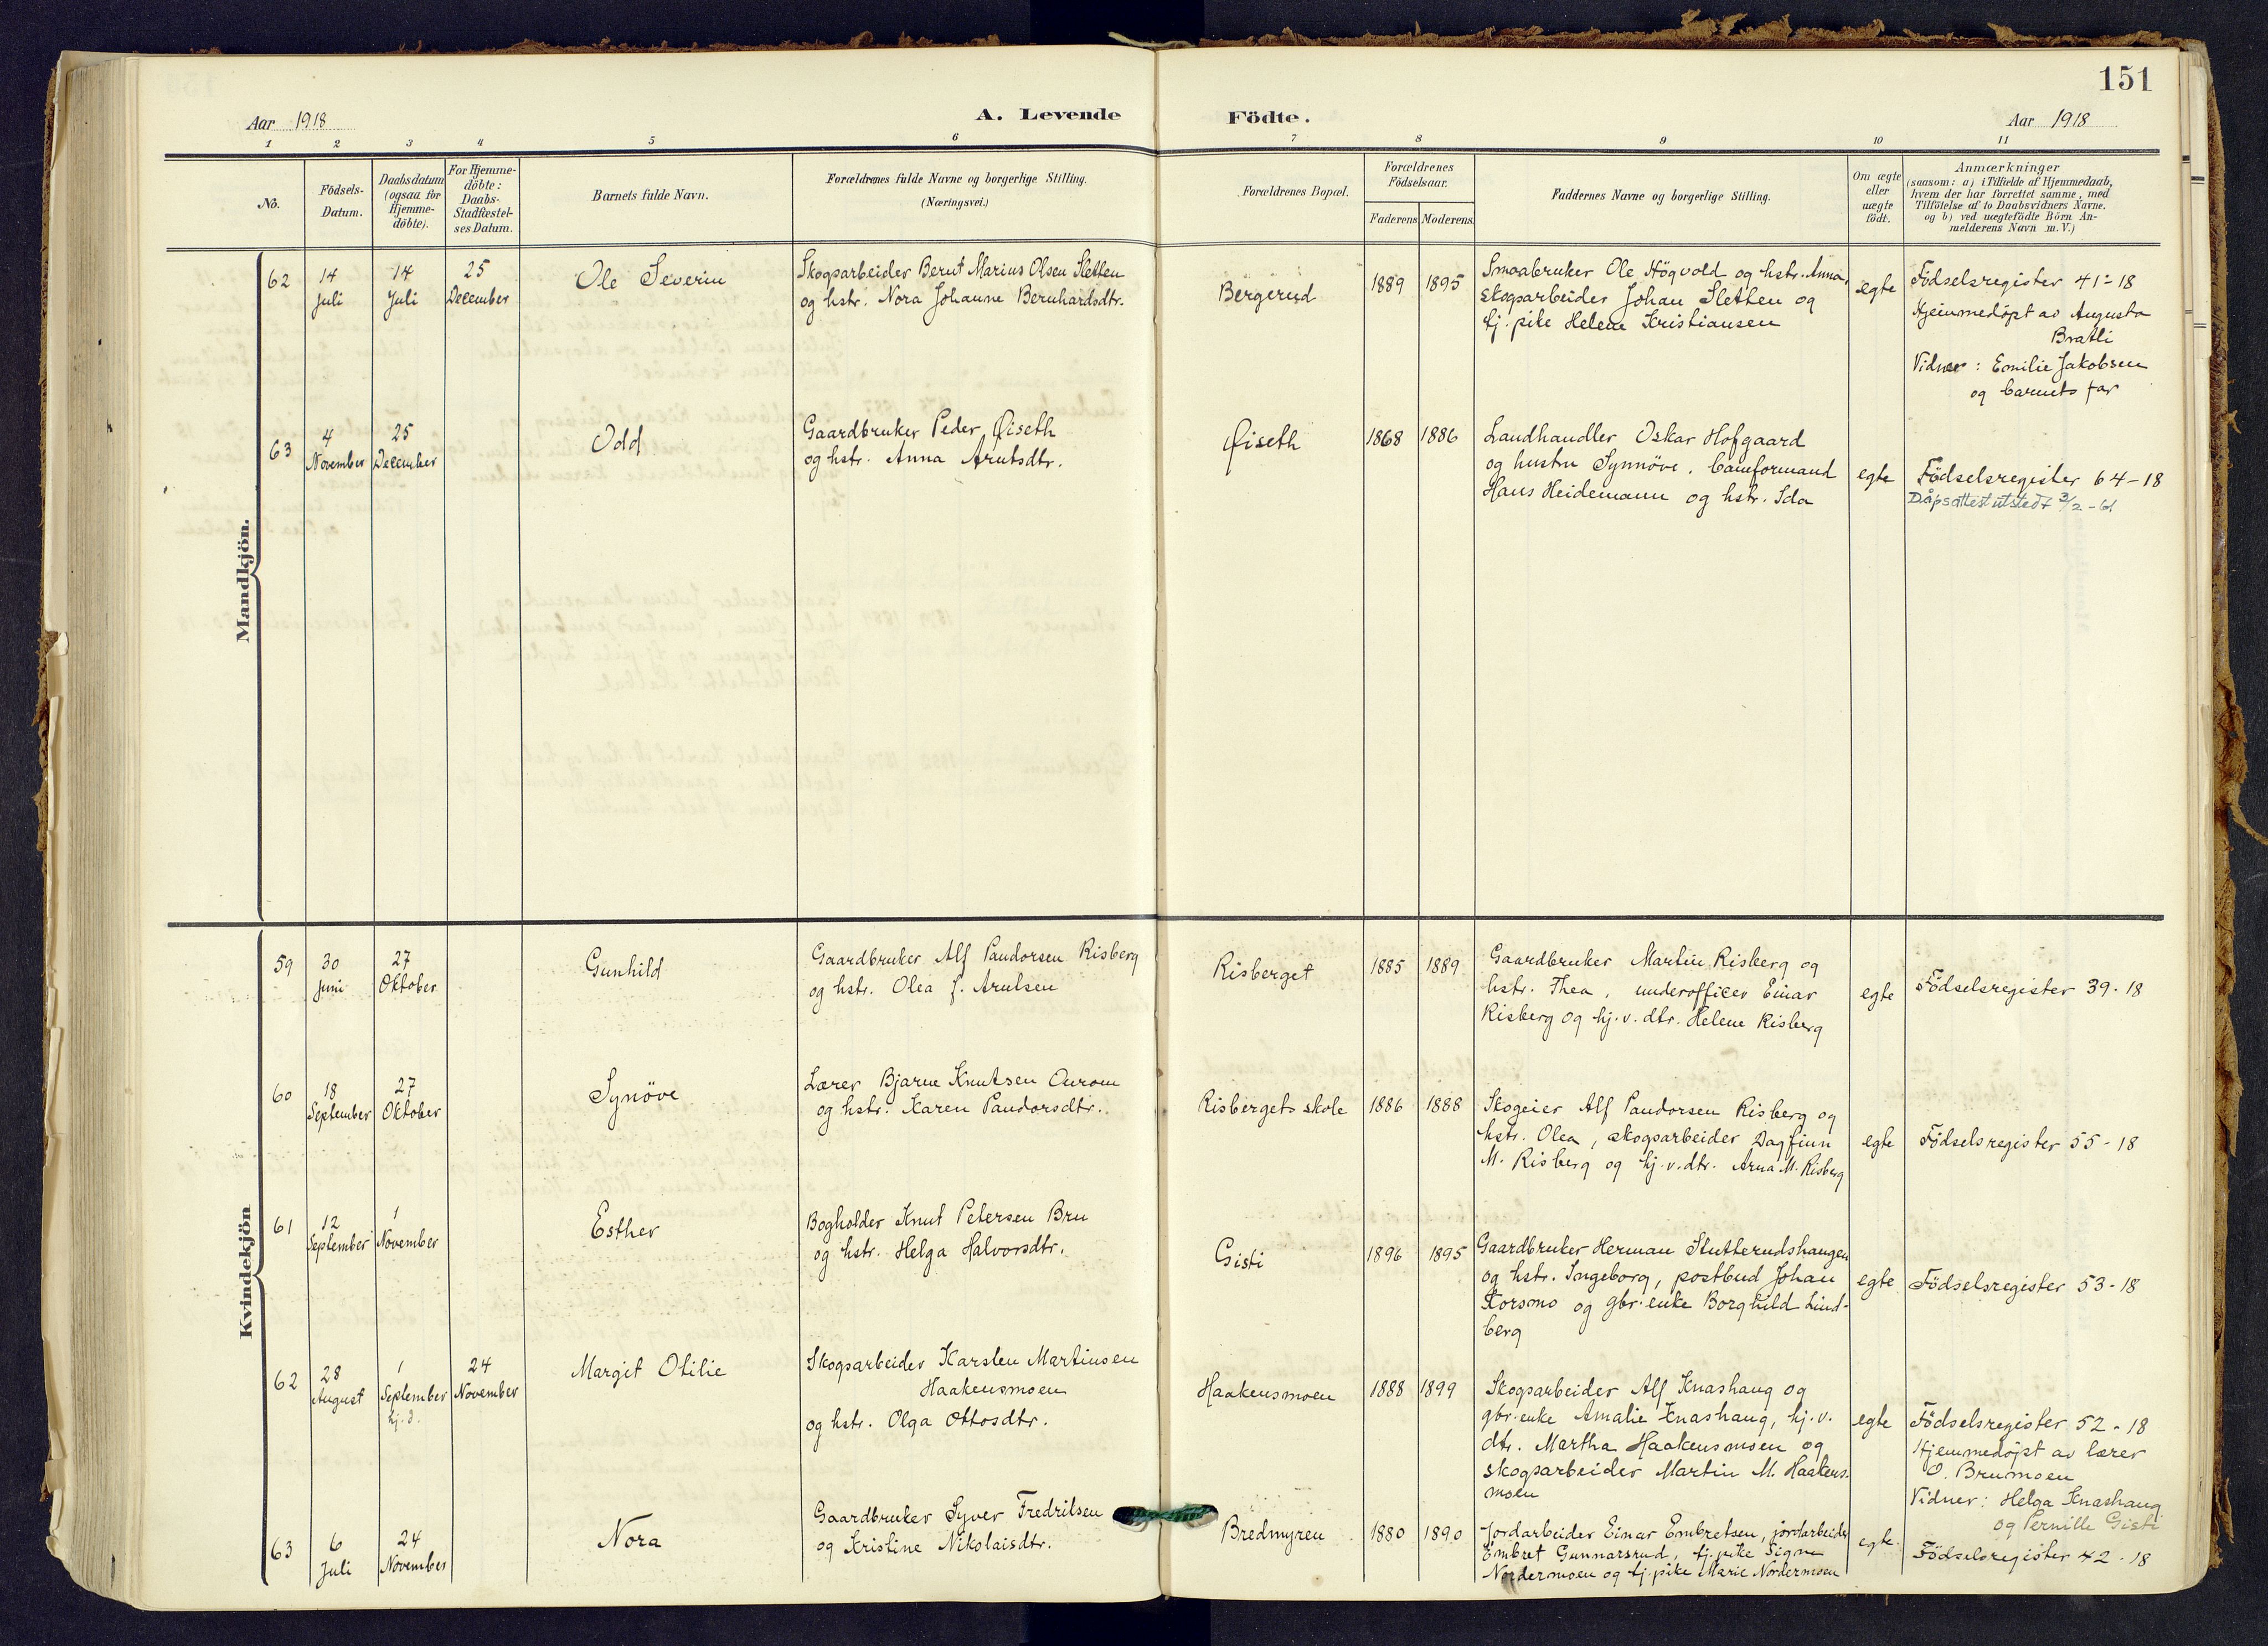 151
Aar 1918
A. Levende Födte.
Aar 1918
1 2 3 4 5 6 7 8 9 10 11
No.
Födsels-
Datum.
Daabsdatum
(ogsaa for
Hjemme-
döbte).
For Hjemme-
döbte:
Daabs-
Stadfæstel-
ses Datum.
Barnets fulde Navn.
Forældrenes fulde Navne og borgerlige Stilling.
(Næringsvei.)
Forældrenes Bopæl.
Forældrenes
Födselsaar.
Faderens Moderens
Faddernes Navne og borgerlige Stilling.
Om ægte
eller
uægte
födt.
Anmærkninger
(saasom: a) i Tilfælde af Hjemmedaab,
hvem der har forrettet samme, med
Tilföielse af to Daabsvidners Navne.
og b) ved uægtefödte Börn An-
melderens Navn m. V.)
Mandkjön.
62
14
Juli
14
Juli
25
December
Ole Severin
Skogsarbeider Bernt Marius Olsen Sletten
og hstr. Nora Johanne Bernhardsdtr.
Bergerud
1889
1895
Smaabruker Ole Högvold og hstr. Anna,
skogsarbeider Johan Sletten og
tj. pike Helene Kristiansen
egte
Födselsregister 41-18
Hjemmedöpt av Augusta
Bratli
Vidner: Emilie Jakobsen
og barnets far
63
4
November
25
December
Odd
Gaardbruker Peder Øiseth
og hstr. Anna Arntsdtr.
Øiseth
1868
1886
Landhandler Oskar Hofgaard
og hustru Synnöve, baneformand
Hans Heidemann og hstr. Ida
egte
Födselsregister 64-18
Dåpsattest utstedt 3/2-61
Kvindekjön
59
30
Juni
27
Oktober
Gunhild
Gaardbruker Alf Pandorsen Risberg
og hstr. Olea f. Arntsen
Risberget
1885
1889
Gaardbruker Martin Risberg og
hstr. Thea, underofficer Einar
Risberg og hj.v. dtr. Helene Risberg
egte
Födselsregister 39-18
60
18
September
27
Oktober
Synöve
Lærer Bjarne Knutsen
og hstr. Karen Pandorsdtr.
Risbergets skole
1886
1888
Skogeier Alf Pandorsen Risberg og
hstr. Olea, skogsarbeider Dagfinn
M. Risberg og hj.v. dtr. Arna M. Risberg
egte
Födselsregister 55-18
61
12
September
1
November
Esther
Bogholder Knut Petersen Bru
og hstr. Helga Halvorsdtr.
Gisti
1896
1895
Gaardbruker Herman Slutterudshaugen
og hstr. Ingeborg, postbud Johan
Korsmo og gbr.enke Borghild Lind-
berg
egte
Födselsregister 53-18
62
28
August
1
September
hj.d.
24
November
Margit Otilie
Skogsarbeider Karsten Martinsen
Haakensmoen
og hstr. Olga Ottosdtr.
Haakensmoen
1888
1899
Skogsarbeider Alf Knashaug og
gbr.enke Amalie Knashaug, hj.v.
dtr. Martha Haakensmoen og
skogsarbeider Martin M. Haakens-
moen
egte
Födselsregister 52-18
Hjemmedöpt av lærer
O. Brumoen
Vidner: Helga Knashaug
og Pernille Gisti
63
6
Juli
24
November
Nora
Gaardbruker Syver Fredriksen
og Kristine Nikolaisdtr.
Bredmyren
1880
1890
Jordarbeider Einar Embretsen, jordarbeider
Embret Gunnarsrud, tj.pike Signe
Nordermoen og tj.pike Marie Nordermoen
egte
Födselsregister 42-18